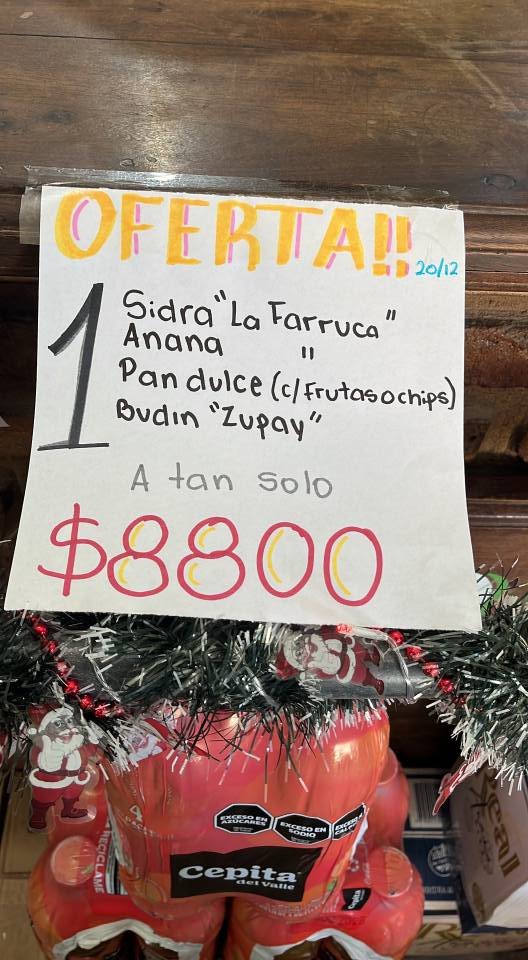 OFERTA!!
20/12
1
Sidra "La Farruca"
Anana "
Pan dulce (c/Frutas o chips)
Budin "Zupay"
A tan solo
$8800
EXCESO EN AZÚCARES
EXCESO EN SODIO
EXCESO
Cepita
del Valle
RECICLAME
Cepita